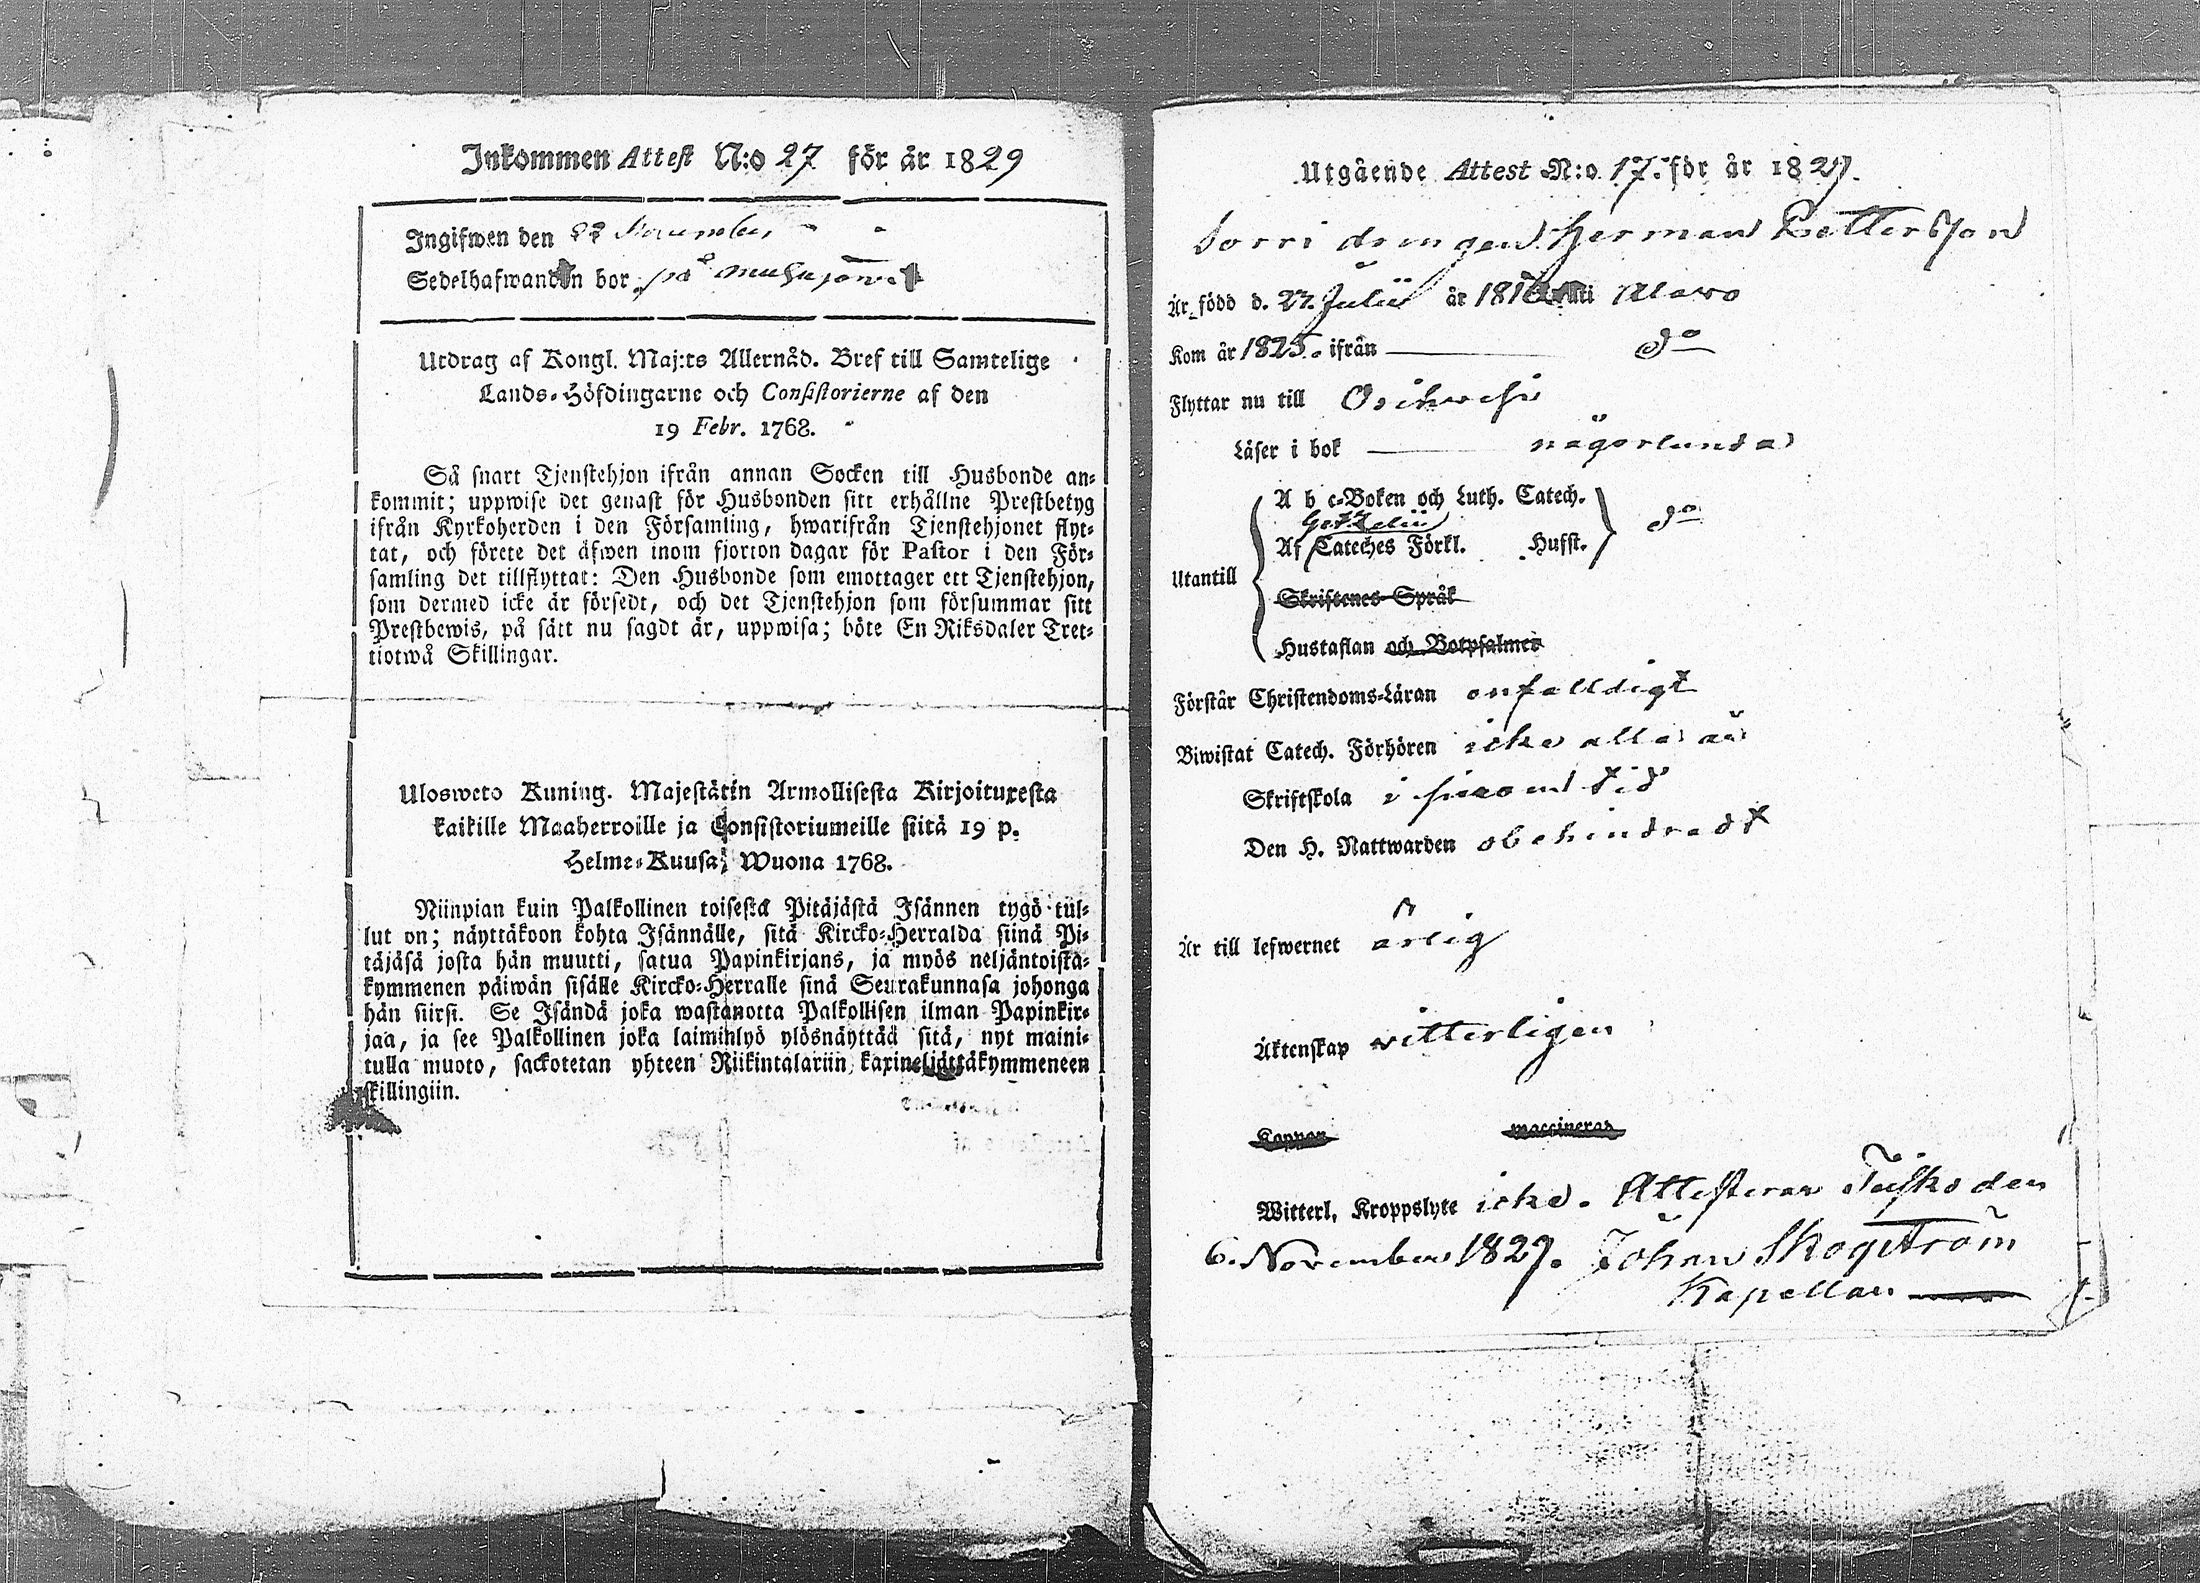 Inkommen Attest N:o 27 för år 1829
Ingifwen den 22 November
Sedelhafwanden bor på
Utdrag af Kongl. Maj:ts Allernåd. Bref till Samtelige
Lands-Höfdingarne och Consistorierne af den
19 Febr. 1768.
Så snart Tjenstehjon ifrån annan Socken till Husbonde an-
kommit; uppwise det genast för Husbonden sitt erhållne Prestbetyg
ifrån Kyrkoherden i den Församling, hwarifrån Tjenstehjonet flyt-
tat, och förete det äfwen inom fjorton dagar för Pastor i den För-
samling det tillflyttat: Den Husbonde som emottager ett Tjenstehjon,
som dermed icke är försedt, och det Tjenstehjon som försummar sitt
Prestbewis, på sätt nu sagdt är, uppwisa; böte En Riksdaler Tret-
tiotwå Skillingar.
Ulosweto Kuning. Majestätin Armollisesta Kirjoituxesta
kaikille Maaherroille ja Consistoriumeille siitä 19 p.
Helme-Kuusa, Wuona 1768.
Niinpian kuin Palkollinen toisesta Pitäjästä Isännen tygö tul-
lut on; näyttäkoon kohta Isännälle, sitä Kircko-Herralda siinä Pi-
täjäsä josta hän muutti, satua Papinkirjans, ja myös neljäntoista-
kymmenen päiwän sisälle Kircko-Herralle sinä Seurakunnasa johonga
hän siirsi. Se Isändä joka wastanotta Palkollisen ilman Papinkir-
jaa, ja see Palkollinen joka laiminlyö ylösnäyttää sitä, nyt maini-
tulla muoto, sackotetan yhteen Riikintalariin kaxineljättäkymmeneen
skillingiin.
Utgående Attest N:o 17. för år 1829.
Sorri drengen Herman Petterson
Är född d. 27. Julii år 1816 i Alavo
Kom år 1825. ifrån do
Flyttar nu till
Läser i bok någorlunda
A b c-Boken och Luth. Catech.
Gezelii
Af Cateches Förkl. Hufst. do
Utantill
Skriftenes Språk
Hustaflan och Botpsalmer
Förstår Christendoms-Läran enfalldigt
Biwistat Catech. Förhören icke alla år
Skriftskola i sinom tid
Den H. Nattwarden obehindradt
Är till lefwernet ärlig
Äktenskap vitterligen
Koppor waccinerad
Witterl. Kroppslyte icke. Attesterar Teisko den
6. November 1829. Johan Skogström
Kapellan